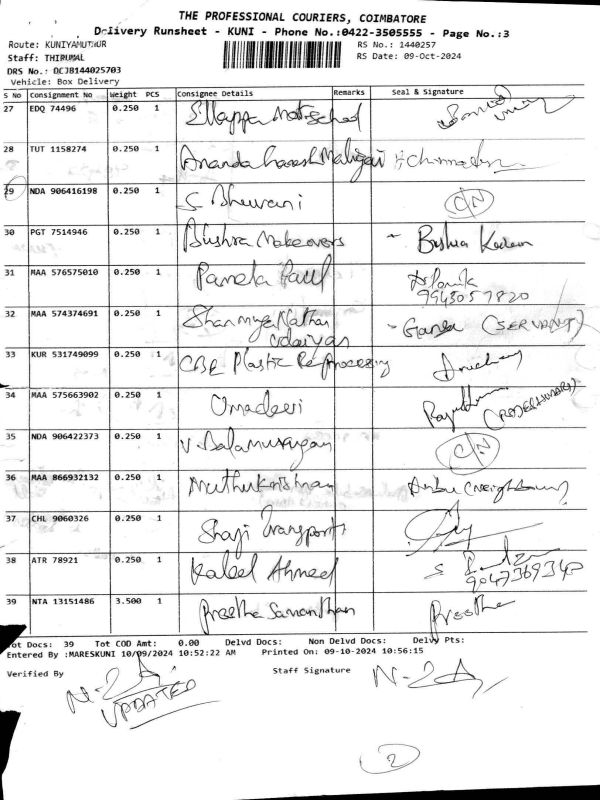 THE PROFESSIONAL COURIERS, COIMBATORE
Delivery Runsheet - KUNI - Phone No.:0422-3505555 - Page No.:3
Route: KUNIYAMUTHUR RS No.: 1440257
Staff: THIRUMAL RS Date: 09-Oct-2024
DRS No.: DCJ8144025703
Vehicle: Box Delivery
S No Consignment No Weight PCS Consignee Details Remarks Seal & Signature
27 EDQ 74496 0.250 1
28 TUT 1158274 0.250 1
29 NDA 906416198 0.250 1 S Bhuvani C/N
30 PGT 7514946 0.250 1 Bushra Makeovers - Bushra
31 MAA 576575010 0.250 1 Pamela Paul
9943057820
32 MAA 574374691 0.250 1 Shanmuga Nathan - Ganga (SERVANT)
Udaiyar
33 KUR 531749099 0.250 1 CBE Plastic Re-Processing
34 MAA 575663902 0.250 1 Umadevi
35 NDA 906422373 0.250 1 V. Balamurugan C/N
36 MAA 866932132 0.250 1 Muthukrishnan
37 CHL 9060326 0.250 1 Shaji Transport
38 ATR 78921 0.250 1 Kaleel Ahmed
39 NTA 13151486 3.500 1 Preetha Samanthan Preetha
Tot Docs: 39 Tot COD Amt: 0.00 Delvd Docs: Non Delvd Docs: Delvy Pts:
Entered By :MARESKUNI 10/09/2024 10:52:22 AM Printed On: 09-10-2024 10:56:15
Verified By Staff Signature
UPDATED
2